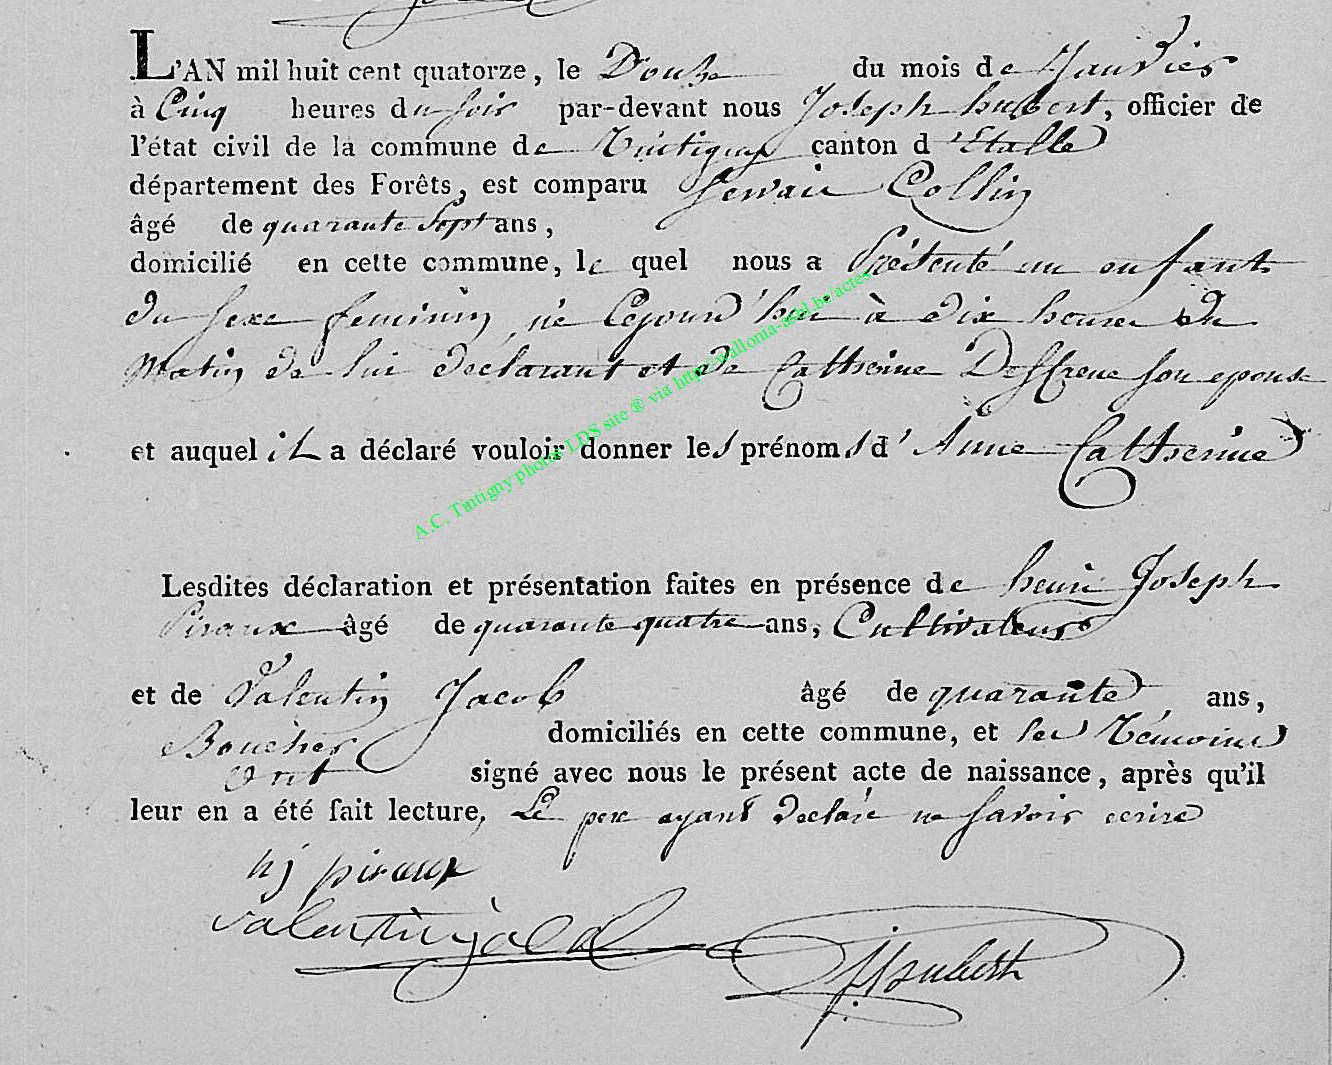 L'AN mil huit cent quatorze, le Douze du mois de Janvier
à Cinq heures du soir par-devant nous Joseph hubert, officier de
l'état civil de la commune de Tintigny canton d'Etalle
département des Forêts, est comparu Servais Collin
âgé de quarante Sept ans,
domicilié en cette commune, le quel nous a Présenté un enfant
du sexe feminin né Cejourd'hui à dix heures du
Matin de lui declarant et de Catherine son epouse
et auquel il a déclaré vouloir donner les prénoms d'Anne Catherine
Lesdites déclaration et présentation faites en présence de henri Joseph
Piraux âgé de quarante quatre ans, Cultivateurs
et de Valentin Jacob âgé de quarante ans,
Boucher domiciliés en cette commune, et les Témoins
ont signé avec nous le présent acte de naissance, après qu'il
leur en a été fait lecture, Le pere ayant declaré ne savoir ecrire
hj piraux
valentin jacob
JHubert
A.C. Tintigny photos LDS site ® via http://wallonia-asbl.be/actes